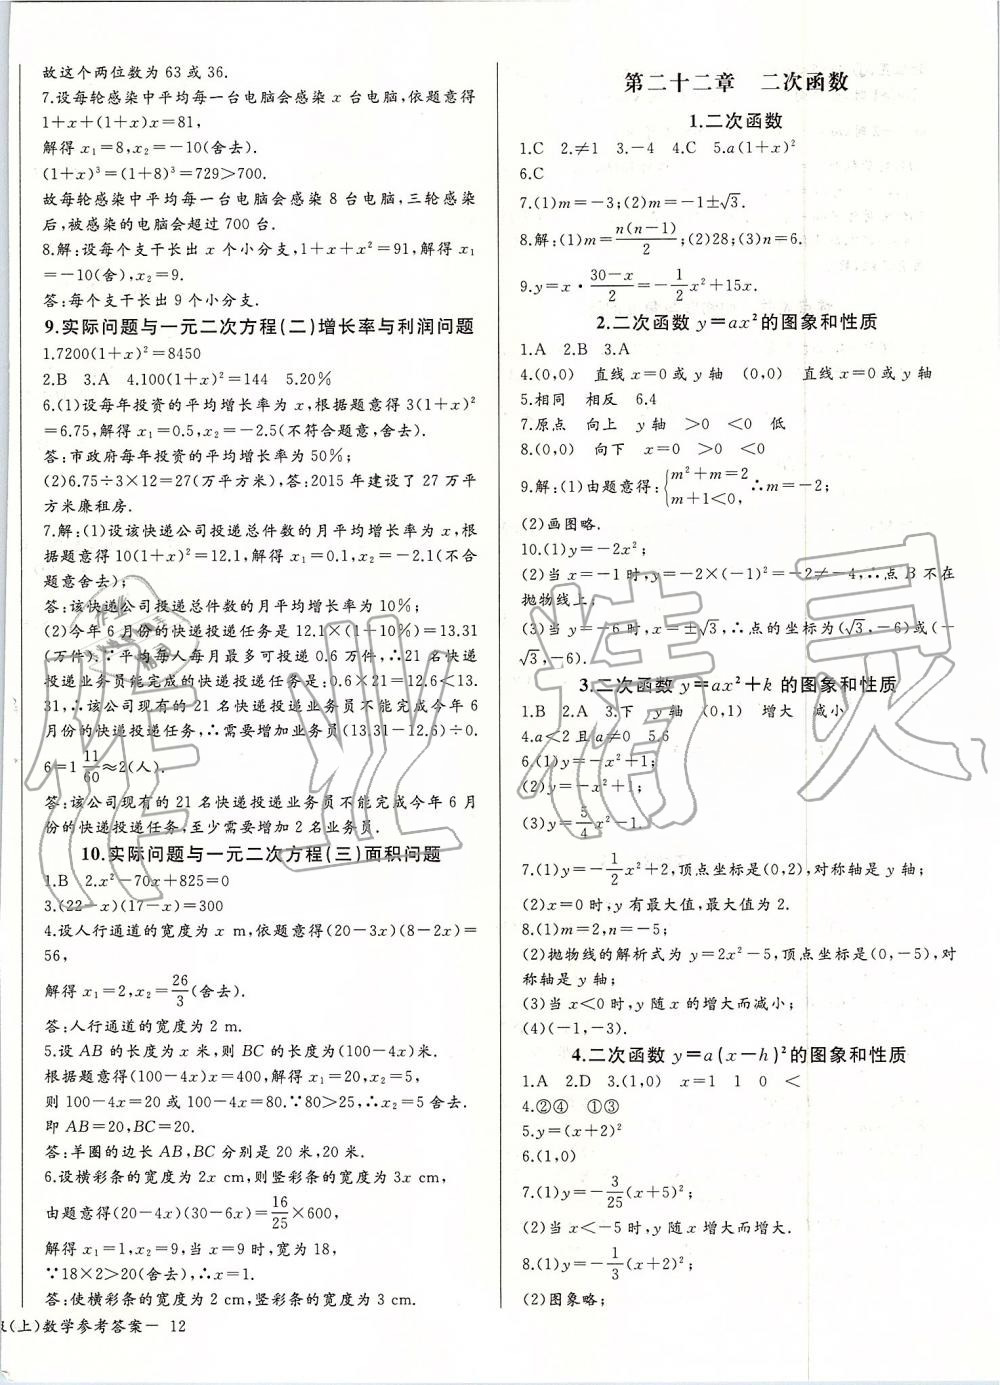 故这个两位数为 63 或 36.
7.设每轮感染中平均每一台电脑会感染 x 台电脑,依题意得
1+x+(1+x)x=81,
解得 x₁=8,x₂=-10(舍去).
(1+x)³=(1+8)³=729>700.
故每轮感染中平均每一台电脑会感染 8 台电脑,三轮感染
后,被感染的电脑会超过 700 台.
8.解:设每个支干长出 x 个小分支,1+x+x²=91,解得 x₁
=-10(舍),x₂=9.
答:每个支干长出 9 个小分支.
9.实际问题与一元二次方程(二)增长率与利润问题
1.7200(1+x)²=8450
2.B 3.A 4.100(1+x)²=144 5.20%
6.(1)设每年投资的平均增长率为 x,根据题意得 3(1+x)²
=6.75,解得 x₁=0.5,x₂=-2.5(不符合题意,舍去).
答:市政府每年投资的平均增长率为 50%;
(2)6.75÷3×12=27(万平方米),答:2015 年建设了 27 万平
方米廉租房.
7.解:(1)设该快递公司投递总件数的月平均增长率为 x,根
据题意得 10(1+x)²=12.1,解得 x₁=0.1,x₂=-2.1(不合
题意舍去);
答:该快递公司投递总件数的月平均增长率为 10%;
(2)今年 6 月份的快递投递任务是 12.1×(1+10%)=13.31
(万件).∵平均每人每月最多可投递 0.6 万件,∴21 名快递
投递业务员能完成的快递投递任务是:0.6×21=12.6<13.
31,∴该公司现有的 21 名快递投递业务员不能完成今年 6
月份的快递投递任务,∴需要增加业务员(13.31-12.6)÷0.
6=1 11/60≈2(人).
答:该公司现有的 21 名快递投递业务员不能完成今年 6 月
份的快递投递任务,至少需要增加 2 名业务员.
10.实际问题与一元二次方程(三)面积问题
1.B 2.x²-70x+825=0
3.(22-x)(17-x)=300
4.设人行通道的宽度为 x m,依题意得(20-3x)(8-2x)=
56,
解得 x₁=2,x₂=26/3(舍去).
答:人行通道的宽度为 2 m.
5.设 AB 的长度为 x 米,则 BC 的长度为(100-4x)米.
根据题意得(100-4x)x=400,解得 x₁=20,x₂=5,
则 100-4x=20 或 100-4x=80.∵80>25,∴x₂=5 舍去.
即 AB=20,BC=20.
答:羊圈的边长 AB,BC 分别是 20 米,20 米.
6.设横彩条的宽度为 2x cm,则竖彩条的宽度为 3x cm,
由题意得(20-4x)(30-6x)=16/25×600,
解得 x₁=1,x₂=9,当 x=9 时,宽为 18,
∵18×2>20(舍去),∴x=1.
答:使横彩条的宽度为 2cm,竖彩条的宽度为 3 cm.
级(上)数学参考答案- 12
第二十二章 二次函数
1.二次函数
1.C 2.≠1 3.-4 4.C 5.a(1+x)²
6.C
7.(1)m=-3;(2)m=-1±√3.
8.解:(1)m=n(n-1)/2;(2)28;(3)n=6.
9.y=x·(30-x)/2=-1/2x²+15x.
2.二次函数 y=ax²的图象和性质
1.A 2.B 3.A
4.(0,0) 直线 x=0 或 y 轴 (0,0) 直线 x=0 或 y 轴
5.相同 相反 6.4
7.原点 向上 y 轴 >0 <0 低
8.(0,0) 向下 x=0 >0 <0
9.解:(1)由题意得:{m²+m=2 m+1<0, ∴m=-2;
(2)画图略.
10.(1)y=-2x²;
(2)当 x=-1 时,y=-2×(-1)²=-2≠-4,∴点 B 不在
抛物线上;
(3)当 y=-6 时,x=±√3,∴点的坐标为(√3,-6)或(-
√3,-6).
3.二次函数 y=ax²+k 的图象和性质
1.B 2.A 3.下 y 轴 (0,1) 增大 减小
4.a<2 且 a≠0 5.6
6.(1)y=-x²+1;
(2)y=-x²+1;
(3)y=5/4x²-1.
7.(1)y=-1/2x²+2,顶点坐标是(0,2),对称轴是 y 轴;
(2)x=0 时,y 有最大值,最大值为 2.
8.(1)m=2,n=-5;
(2)抛物线的解析式为 y=2x²-5,顶点坐标是(0,-5),对
称轴是 y 轴;
(3)当 x<0 时,y 随 x 的增大而减小;
(4)(-1,-3).
4.二次函数 y=a(x-h)²的图象和性质
1.A 2.D 3.(1,0) x=1 1 0 <
4.②④ ①③
5.y=(x+2)²
6.(1,0)
7.(1)y=-3/25(x+5)²;
(2)当 x<-5 时,y 随 x 增大而增大.
8.(1)y=-1/3(x+2)²;
(2)图象略;
作业精灵